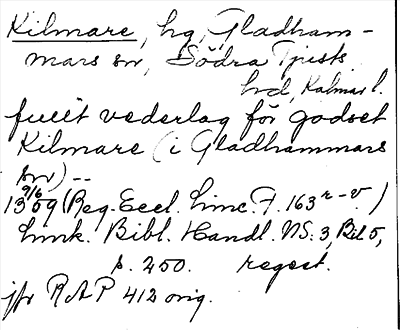 Kilmare, hg, Gladham-
mars sn, Södra Tjusts
hd, Kalmar l.
fullt vederlag för godset
Kilmare (i Gladhammars
sn) --
1359 9/6 (Reg. Eccl. Linc. F. 163 r-v.)
Link. Bibl. Handl. NS: 3, Bil 5,
s. 250. regest.
jfr RAP 412 orig.